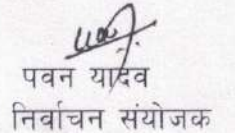 पवन यादव
निर्वाचन संयोजक